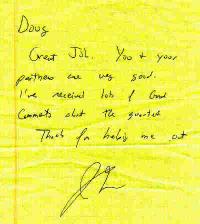 Doug
Great Job. You & your
partners are very good.
I've received lots of Good
Comments about the quartet
Thank for helping me out